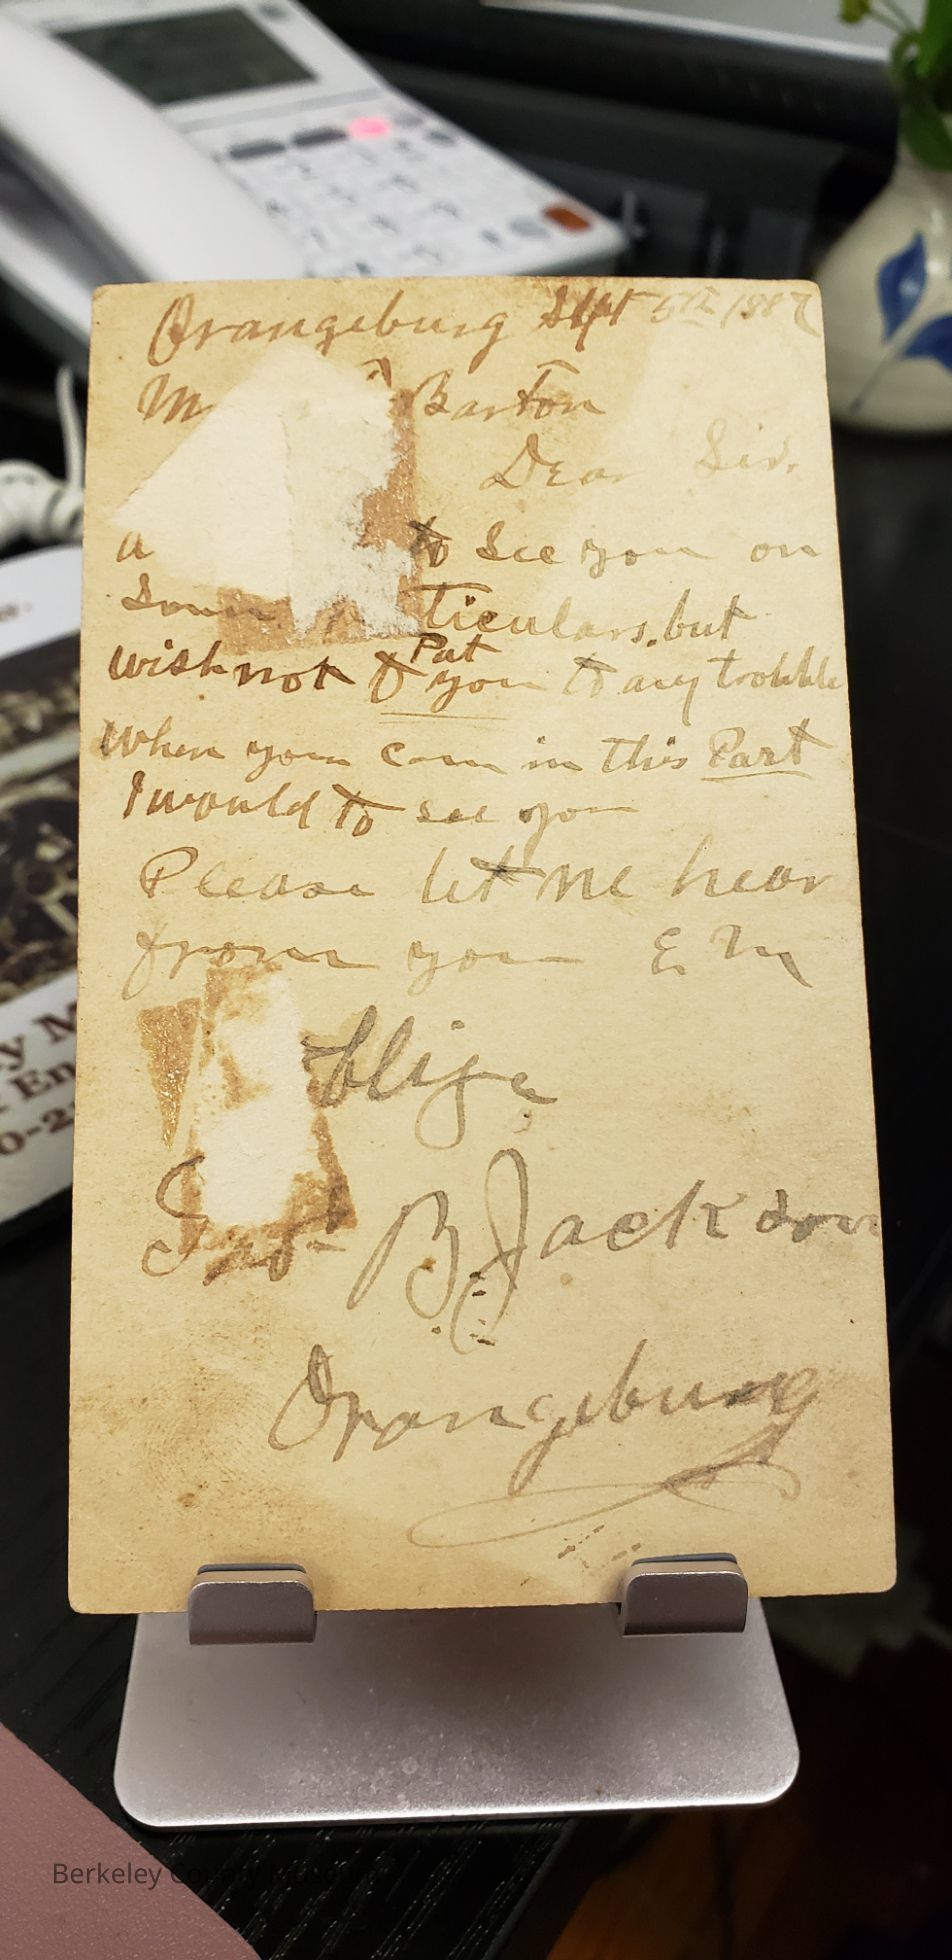 Orangeburg Sept 5th 1887
Barton
Dear Sir.
to see you on
ticulars, but
wish not to Put you to any trobble
When you com in this Part
I would to see you
Please let me hear
from you E. M
blige
B. Jackson
Orangeburg
Berkeley County Museum